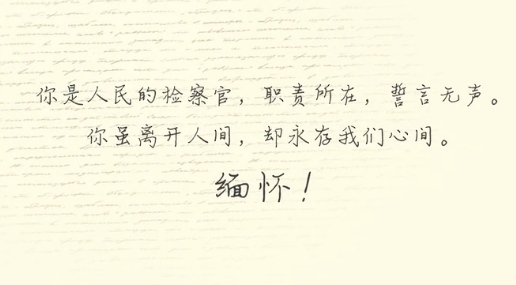 你是人民的检察官，职责所在，誓言无声。
你虽离开人间，却永存我们心间。
缅怀！